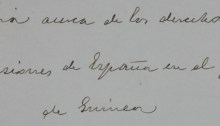 acerca de los derechos
siones de España en el
de Guinea